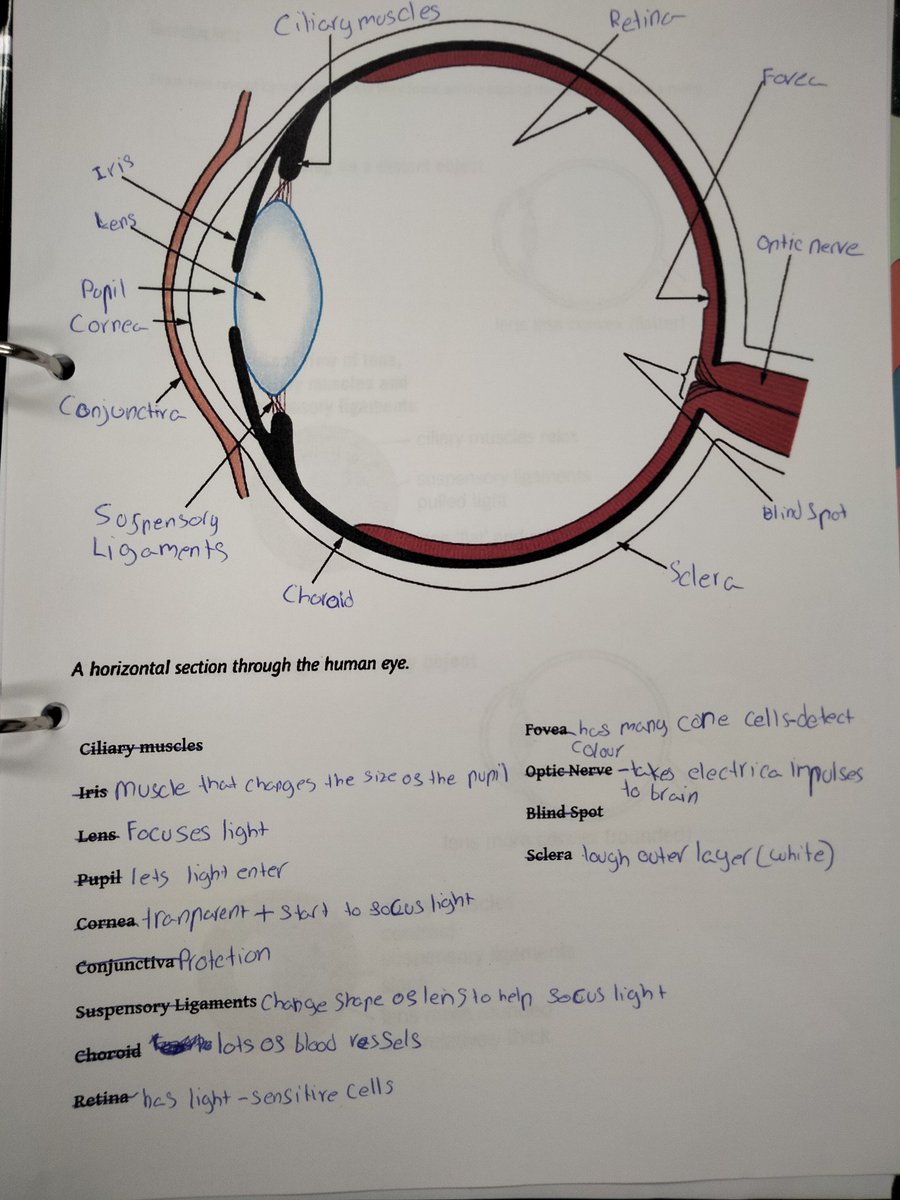 Ciliary muscles
Retina
Fovea
Iris
Lens
Optic nerve
Pupil
Cornea
Conjunctiva
Suspensory
Ligaments
Blind Spot
Sclera
Choroid
A horizontal section through the human eye.
Ciliary muscles
Iris Muscle that changes the size os the pupil
Lens Focuses light
Pupil lets light enter
Cornea tranparent + start to socus light
Conjunctiva Protetion
Suspensory Ligaments Change shape os lens to help socus light
Choroid lots os blood vessels
Retina has light-sensitive cells
Fovea has many cone cells-detect
colour
Optic Nerve - takes electrica impulses
to brain
Blind Spot
Sclera tough outer layer (white)
ciliary muscles relax
suspensory ligaments
pulled tight